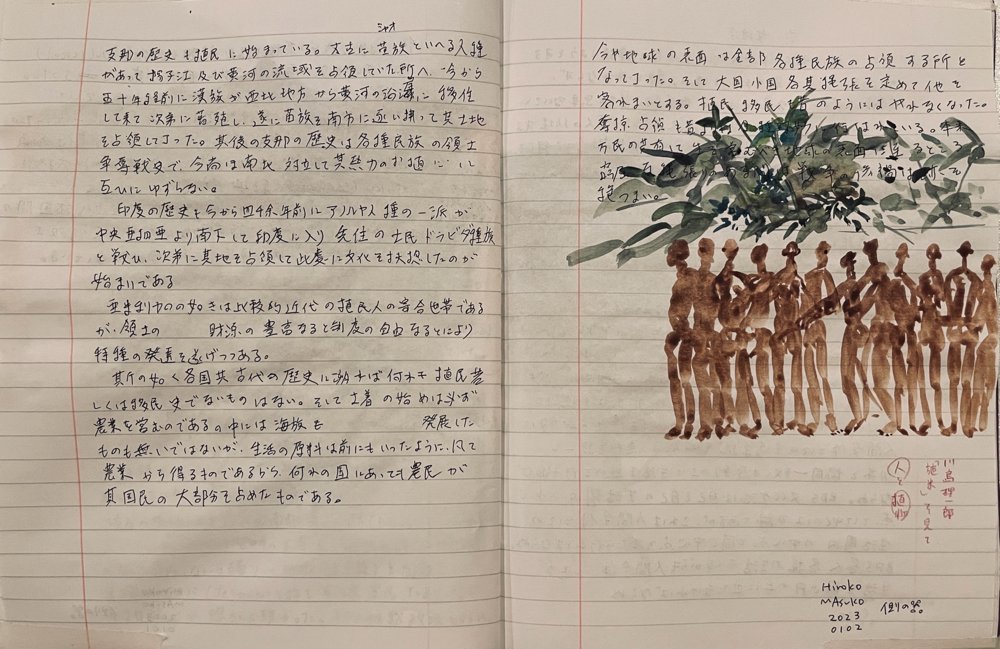 シャオ
支那の歴史も植民に始まっている。太古に苗族といへる人種
があって揚子江及び黄河の流域を占領していた所へ、今から
五千年程前に漢族が西北地方から黄河の沿岸に移住
して来て次第に蕃殖し、遂に苗族を南方に逐い拂って其土地
を占領して了った。其後の支那の歴史は各種民族の領土
争奪戦史で、今尚ほ南北対立して其勢力の
互ひにゆずらない。
印度の歴史も今から四千余年前にアリヤン人種の一派が
中央亜細亜より南下して印度に入り先住の土民ドラビダ種族
と戦ひ、次第に其地を占領して此處に文化を扶植したのが
始まりである
亜米利加の如きは比較的近代の植民人の寄合世帯である
が、領土の 財源の豊富なると制度の自由なるとにより
特種の発達を遂げつつある。
斯の如く各国共古代の歴史に溯れば何れも植民若
しくは移民史でないものはない。そして土着の始めは必ず
農業を営むのである。中には海族も 発展した
ものも無いではないが、生活の原料は前にもいったように、凡て
農業から得るものであるから、何れの国にあっても農民が
其国民の大部分を占めたものである。
今や地球の表面は全部各種民族の占領する所と
なって了った。そして大国小国各其境界を定めて他を
容れまいとする。植民移民も昔のようにはやれなくなった。
奪掠占領も昔 行はれている。
万民の 地球の表面に
戦争の
絶つまい。
川島理一郎
「 」を見て
人と植物
Hiroko
MAsuko
2023
0102